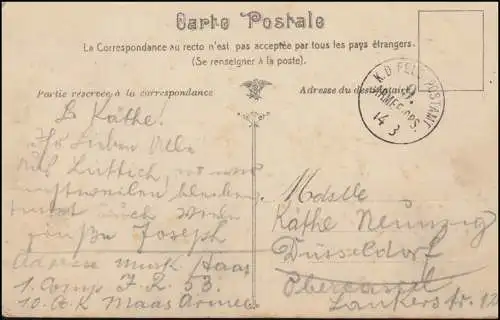 Carte Postale
La Correspondance au recto n'est pas acceptée par tous les pays étrangers.
(Se renseigner à la poste).
Partie réservée à la correspondance
Adresse du destinataire
K.D. FELD-POSTAMT
ARMEEKORPS.
14 3
Käthe!
Ihr Lieben Alle
Aus Lüttich, wo wir
bleiben
Joseph
Adresse musk. Haas
1. Comp J. R. 53.
10. A. K Maas Armee
Mdslle
Käthe Neunzig
Düsseldorf
Obercassel
Lankerstr. 12